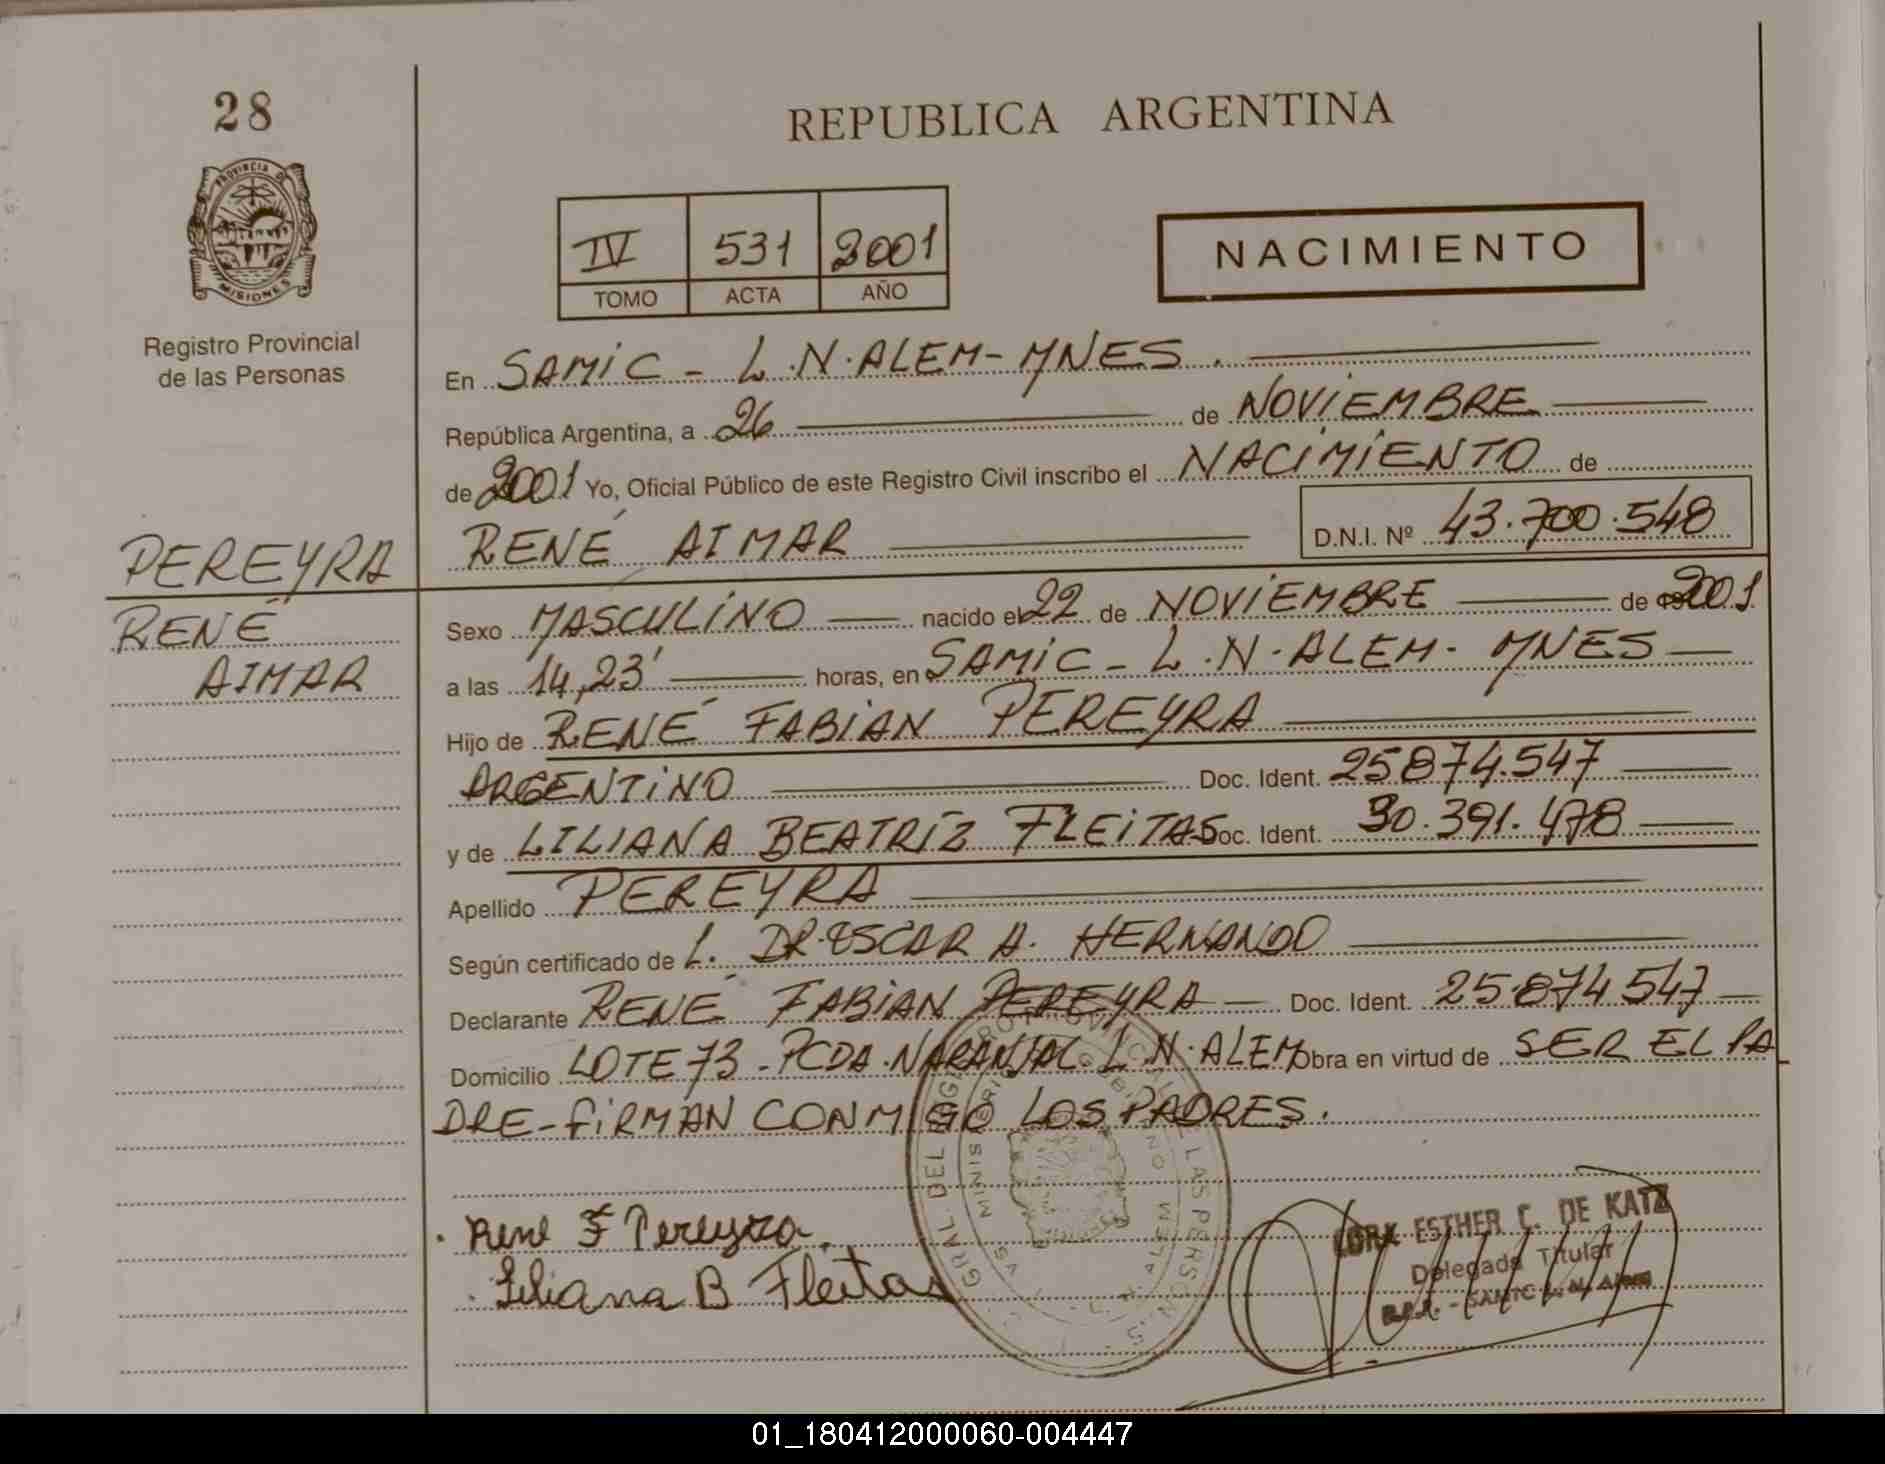 28
REPUBLICA ARGENTINA
PROVINCIA DE
MISIONES
Registro Provincial
de las Personas
IV 531 2001
TOMO ACTA AÑO
NACIMIENTO
En SAMIC - L.N.ALEM-MNES.
República Argentina, a 26 de NOVIEMBRE
de 2001 Yo, Oficial Público de este Registro Civil inscribo el NACIMIENTO de
RENÉ AIMAR D.N.I. Nº 43.700.548
PEREYRA
RENÉ
AIMAR
Sexo MASCULINO nacido el 22 de NOVIEMBRE de 2001
a las 14,23' horas, en SAMIC - L.N.ALEM- MNES
Hijo de RENÉ FABIAN PEREYRA
ARGENTINO Doc. Ident. 25874.547
y de LILIANA BEATRÍZ FLEITAS Doc. Ident. 30.391.478
Apellido PEREYRA
Según certificado de L. DR. OSCAR A. HERNANDO
Declarante RENÉ FABIAN PEREYRA Doc. Ident. 25.874 547
Domicilio LOTE 73 - PCDA.NARANJAL. L.N.ALEM Obra en virtud de SER EL PA
DRE-FIRMAN CONMIGO LOS PADRES.
René F Pereyra.
Liliana B Fleitas
ESTHER C. DE KATZ
Delegada Titular
R.P.P. - SAMIC L.N. Alem
01_180412000060-004447